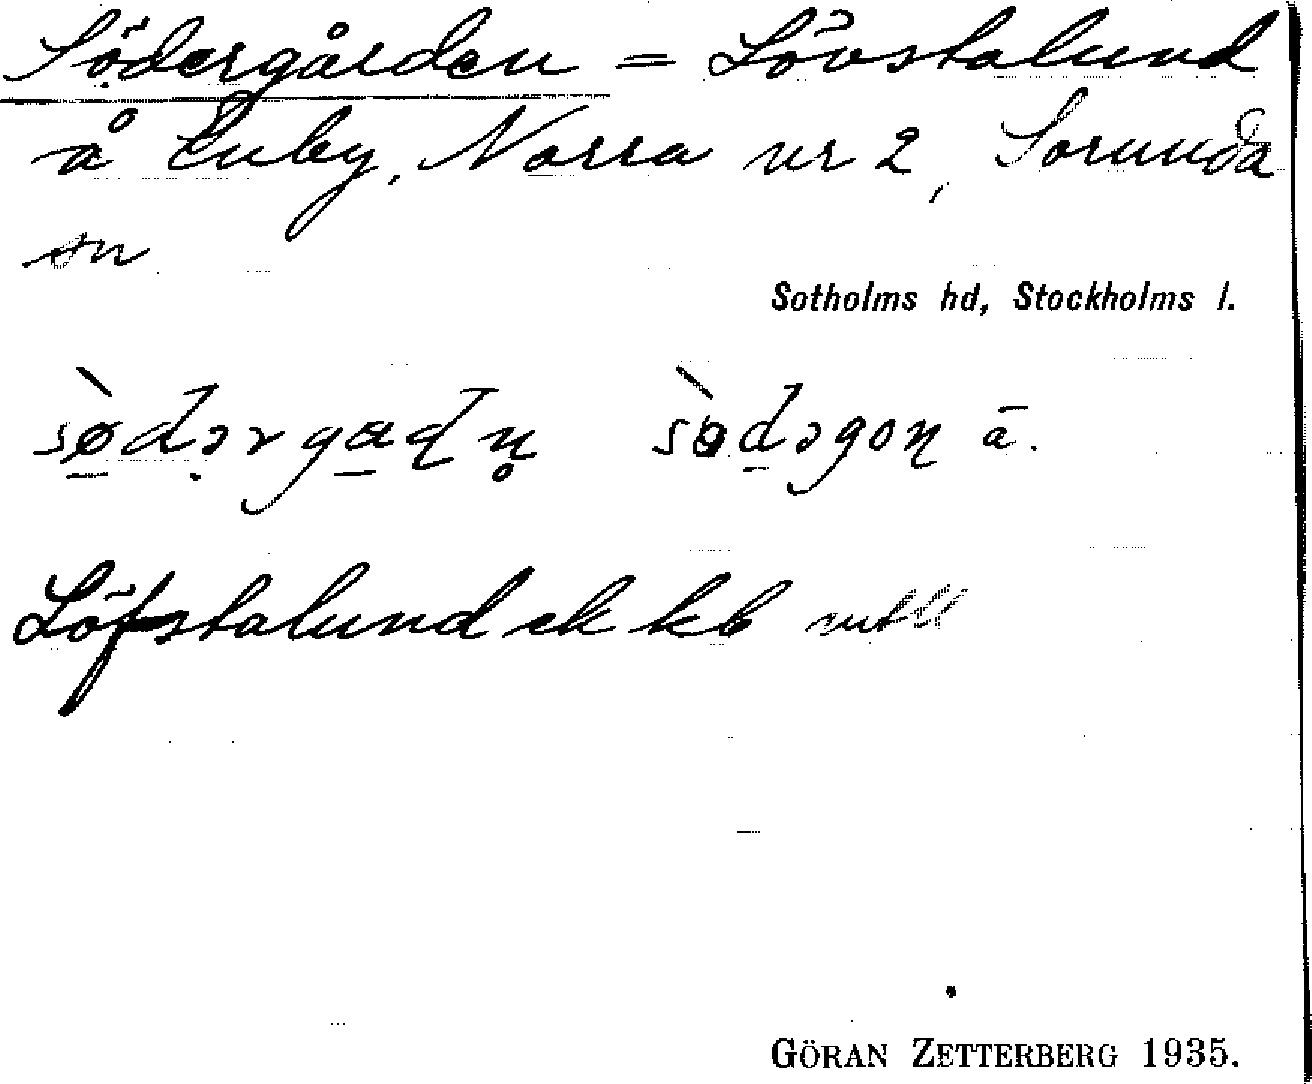 Södergården = Lövstalund
å Enby, Norra nr 2, Sorunda
sn
Sotholms hd, Stockholms l.
sø̀dərgɑɖn̥ sø̀dəgoɳ ā.
Löfstalund ek kb
GÖRAN ZETTERBERG 1935.